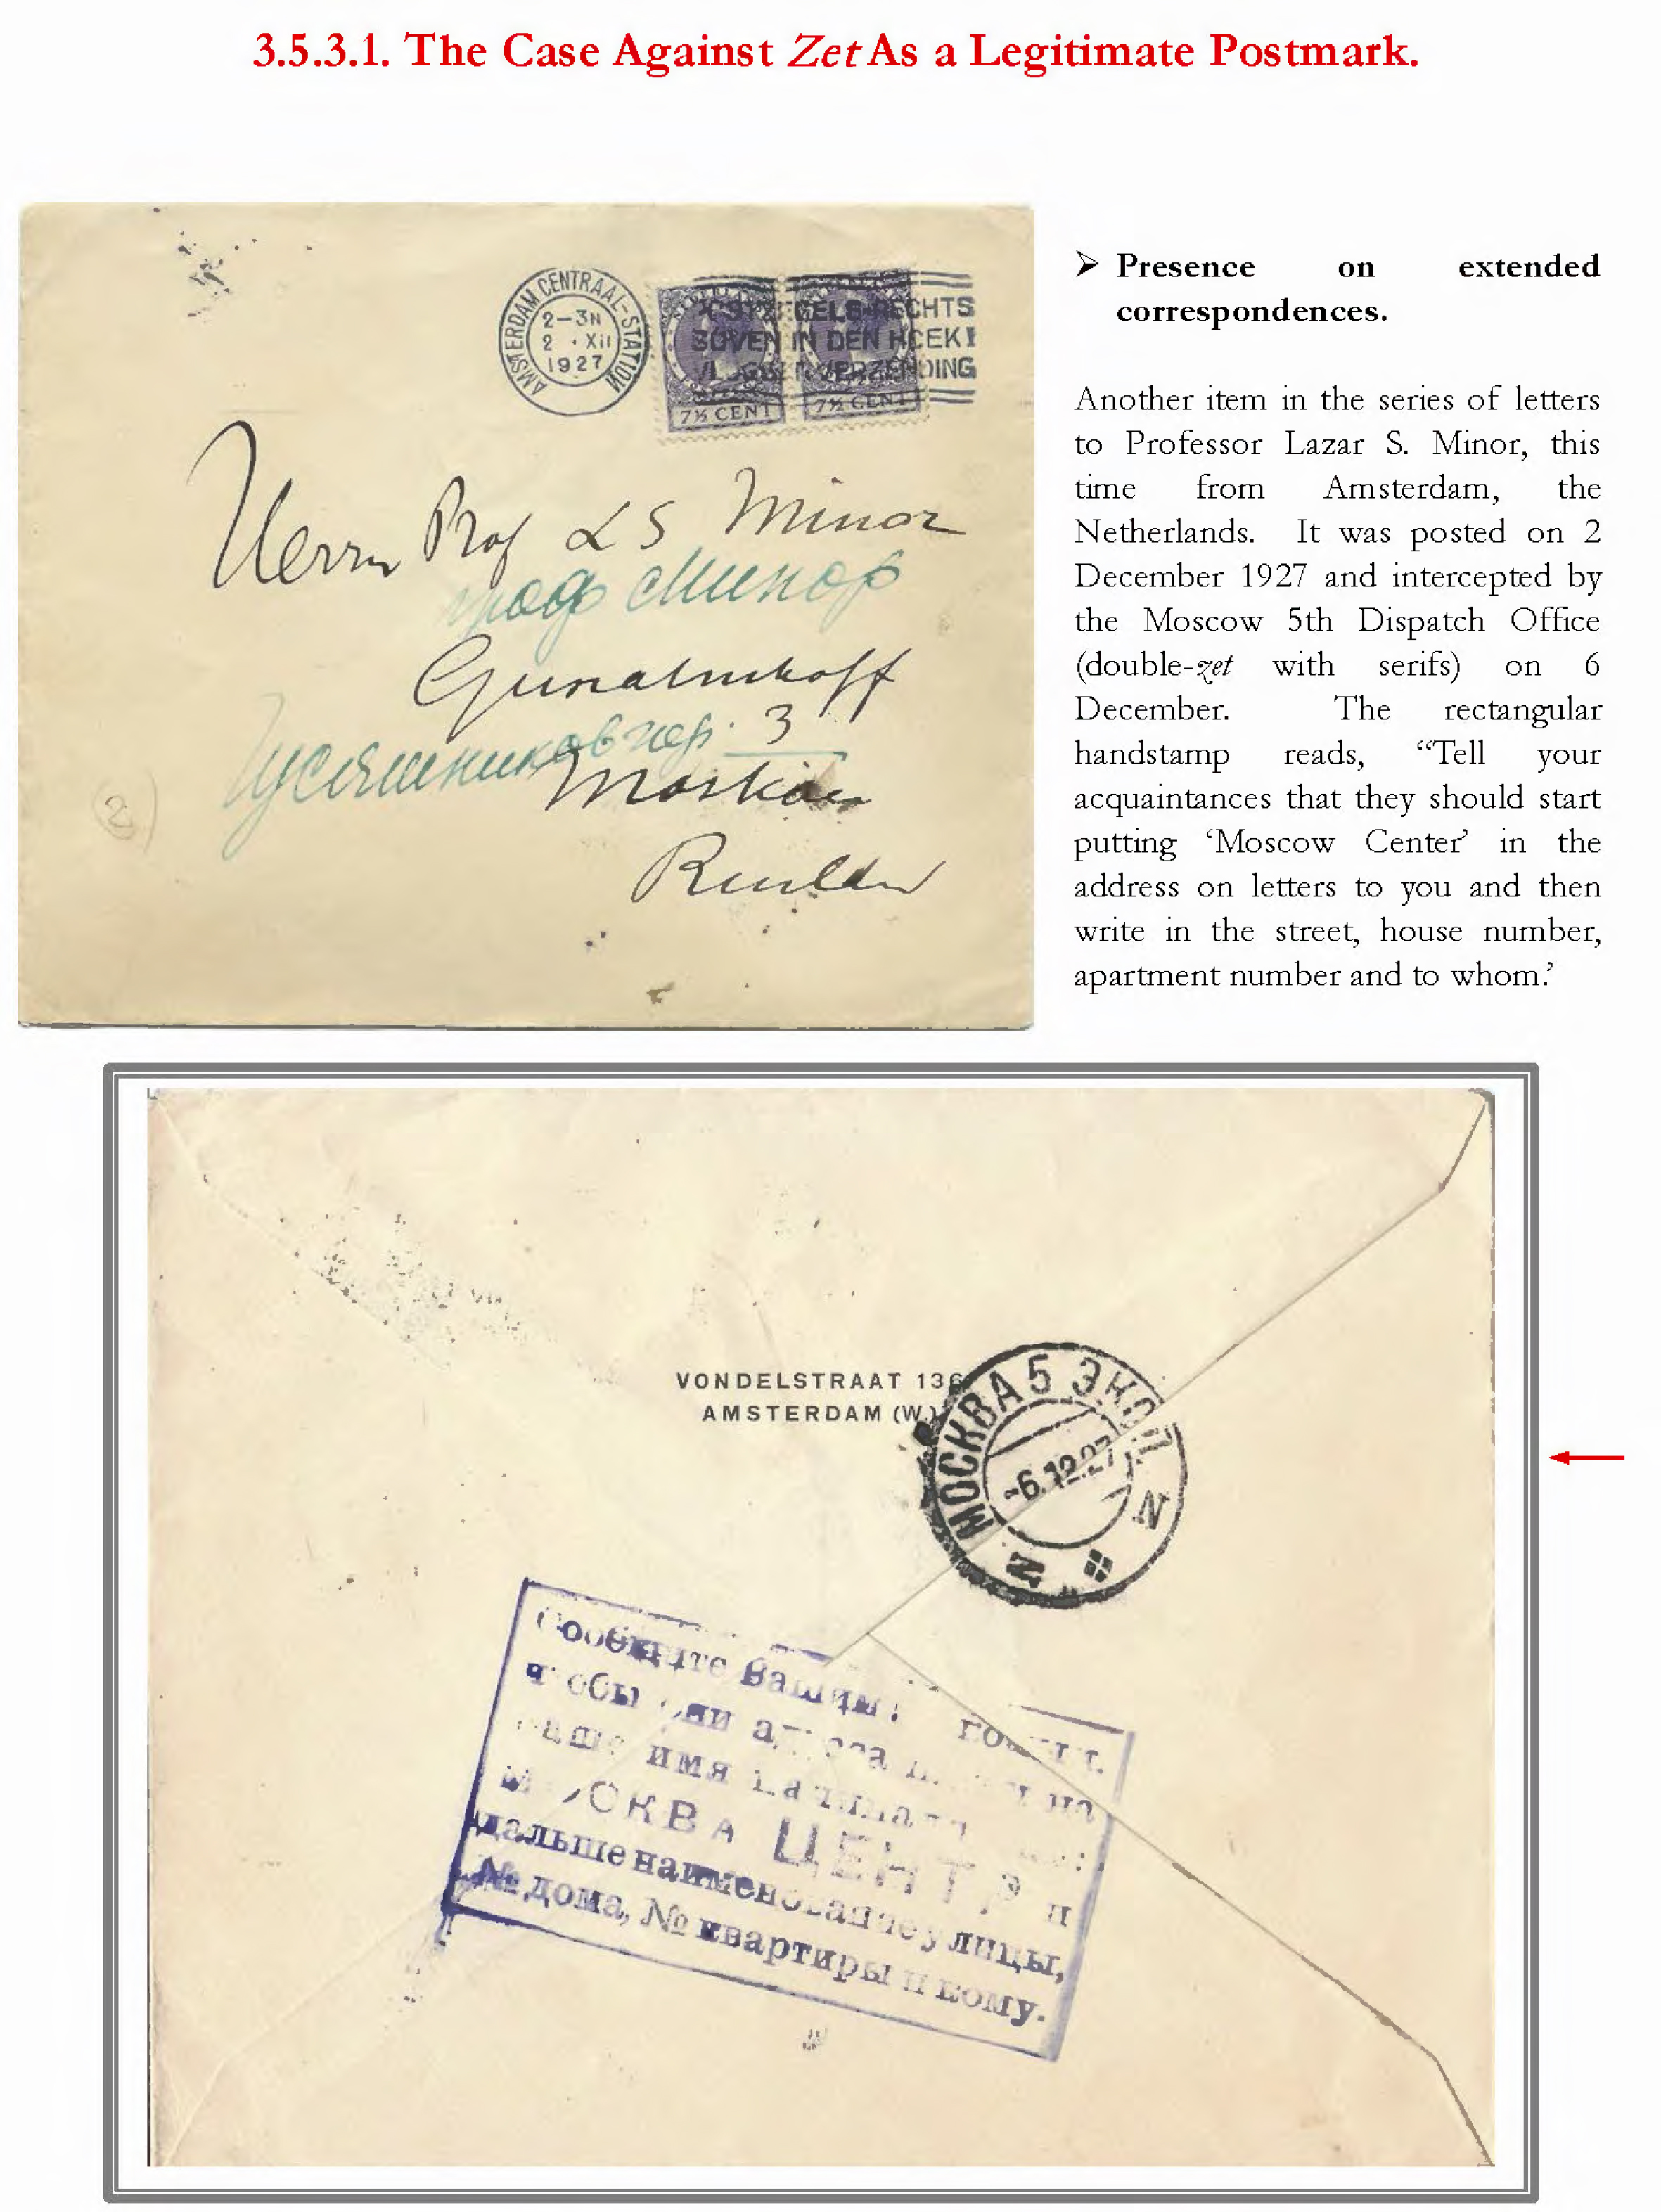 3.5.3.1. The Case Against Zet As a Legitimate Postmark.
AMSTERDAM CENTRAAL-STATION
2-3N
2 · XII
1927
POSTZEGELS RECHTS
BOVEN IN DEN HOEK!
VERZENDING
7½ CENT 7½ CENT
Herrn Prof L S Minor
проф Минор
3
Moskau
➢ Presence on extended
correspondences.
Another item in the series of letters
to Professor Lazar S. Minor, this
time from Amsterdam, the
Netherlands. It was posted on 2
December 1927 and intercepted by
the Moscow 5th Dispatch Office
(double-zet with serifs) on 6
December. The rectangular
handstamp reads, “Tell your
acquaintances that they should start
putting ‘Moscow Center’ in the
address on letters to you and then
write in the street, house number,
apartment number and to whom.’
VONDELSTRAAT 136
AMSTERDAM (W.)
МОСКВА 5 ЭКСП
-6.12.27
Z Z
Сообщите Вашим
чтобы они адреса на
ваше имя
МОСКВА ЦЕНТР и
дальше наименование улицы,
№ дома, № квартиры и кому.